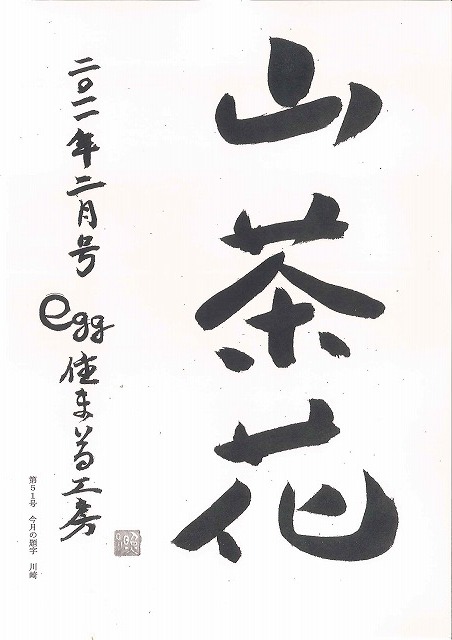 山茶花
二〇一一年二月号
egg住まゐる工房
第51号 今月の題字 川崎